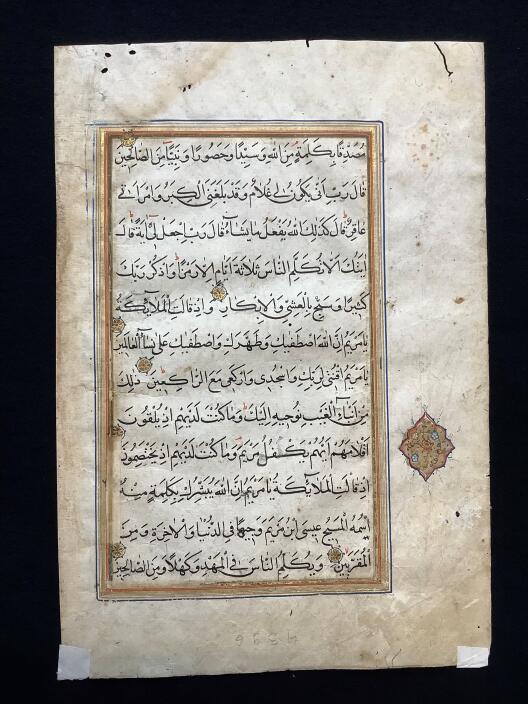 مُصَدِّقًا بِكَلِمَةٍ مِنَ اللهِ وَسَيِّدًا وَحَصُورًا وَنَبِيًّا مِنَ الصَّالِحِينَ
قَالَ رَبِّ أَنَّى يَكُونُ لِي غُلَامٌ وَقَدْ بَلَغَنِيَ الْكِبَرُ وَامْرَأَتِي
عَاقِرٌ قَالَ كَذَلِكَ اللهُ يَفْعَلُ مَا يَشَاءُ قَالَ رَبِّ اجْعَلْ لِي آيَةً قَالَ
آيَتُكَ أَلَّا تُكَلِّمَ النَّاسَ ثَلَاثَةَ أَيَّامٍ إِلَّا رَمْزًا وَاذْكُرْ رَبَّكَ
كَثِيرًا وَسَبِّحْ بِالْعَشِيِّ وَالْإِبْكَارِ وَإِذْ قَالَتِ الْمَلَائِكَةُ
يَا مَرْيَمُ إِنَّ اللهَ اصْطَفَيكِ وَطَهَّرَكِ وَاصْطَفَيكِ عَلَى نِسَاءِ الْعَالَمِينَ
يَا مَرْيَمُ اقْنُتِي لِرَبِّكِ وَاسْجُدِي وَارْكَعِي مَعَ الرَّاكِعِينَ ذَلِكَ
مِنْ أَنْبَاءِ الْغَيْبِ نُوحِيهِ إِلَيْكَ وَمَا كُنْتَ لَدَيْهِمْ إِذْ يُلْقُونَ
أَقْلَامَهُمْ أَيُّهُمْ يَكْفُلُ مَرْيَمَ وَمَا كُنْتَ لَدَيْهِمْ إِذْ يَخْتَصِمُونَ
إِذْ قَالَتِ الْمَلَائِكَةُ يَا مَرْيَمُ إِنَّ اللهَ يُبَشِّرُكِ بِكَلِمَةٍ مِنْهُ
اسْمُهُ الْمَسِيحُ عِيسَى ابْنُ مَرْيَمَ وَجِيهًا فِي الدُّنْيَا وَالْآخِرَةِ وَمِنَ
الْمُقَرَّبِينَ وَيُكَلِّمُ النَّاسَ فِي الْمَهْدِ وَكَهْلًا وَمِنَ الصَّالِحِينَ